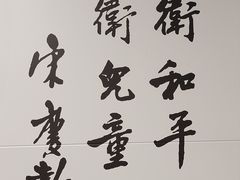 衛和平
衛兒童
宋慶齡